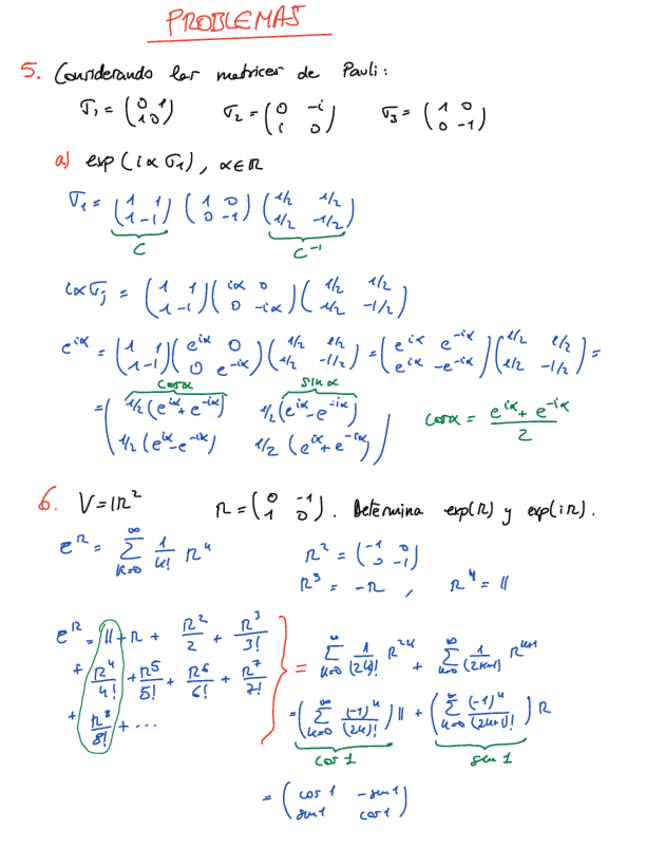 PROBLEMAS
5. Considerando las matrices de Pauli:
σ₁ = (0 1; 1 0)   σ₂ = (0 -i; i 0)   σ₃ = (1 0; 0 -1)
a) exp(iασ₁), α∈ℝ
σ₁ = (1 1; 1 -1) (1 0; 0 -1) (1/2 1/2; 1/2 -1/2)
C   C⁻¹
iασ₁ = (1 1; 1 -1) (iα 0; 0 -iα) (1/2 1/2; 1/2 -1/2)
e^{iα} = (1 1; 1 -1) (e^{iα} 0; 0 e^{-iα}) (1/2 1/2; 1/2 -1/2) = (e^{iα} e^{-iα}; e^{iα} -e^{-iα}) (1/2 1/2; 1/2 -1/2) =
cosα   sinα
= (1/2(e^{iα}+e^{-iα}) 1/2(e^{iα}-e^{-iα}); 1/2(e^{iα}-e^{-iα}) 1/2(e^{iα}+e^{-iα}))   cosα = (e^{iα}+e^{-iα})/2
6. V=ℝ²   R = (0 -1; 1 0). Determina exp(R) y exp(iR).
e^R = Σ_{k=0}^{∞} 1/k! R^k   R² = (-1 0; 0 -1)
R³ = -R , R⁴ = 𝟙
e^R = 𝟙 + R + R²/2 + R³/3!
+ R⁴/4! + R⁵/5! + R⁶/6! + R⁷/7!
+ R⁸/8! + ...
= Σ_{k=0}^{∞} 1/(2k)! R^{2k} + Σ_{k=0}^{∞} 1/(2k+1)! R^{k+1}
= (Σ_{k=0}^{∞} (-1)^k/(2k)!) 𝟙 + (Σ_{k=0}^{∞} (-1)^k/(2k+1)!) R
cos 1   sen 1
= (cos 1 -sen 1; sen 1 cos 1)